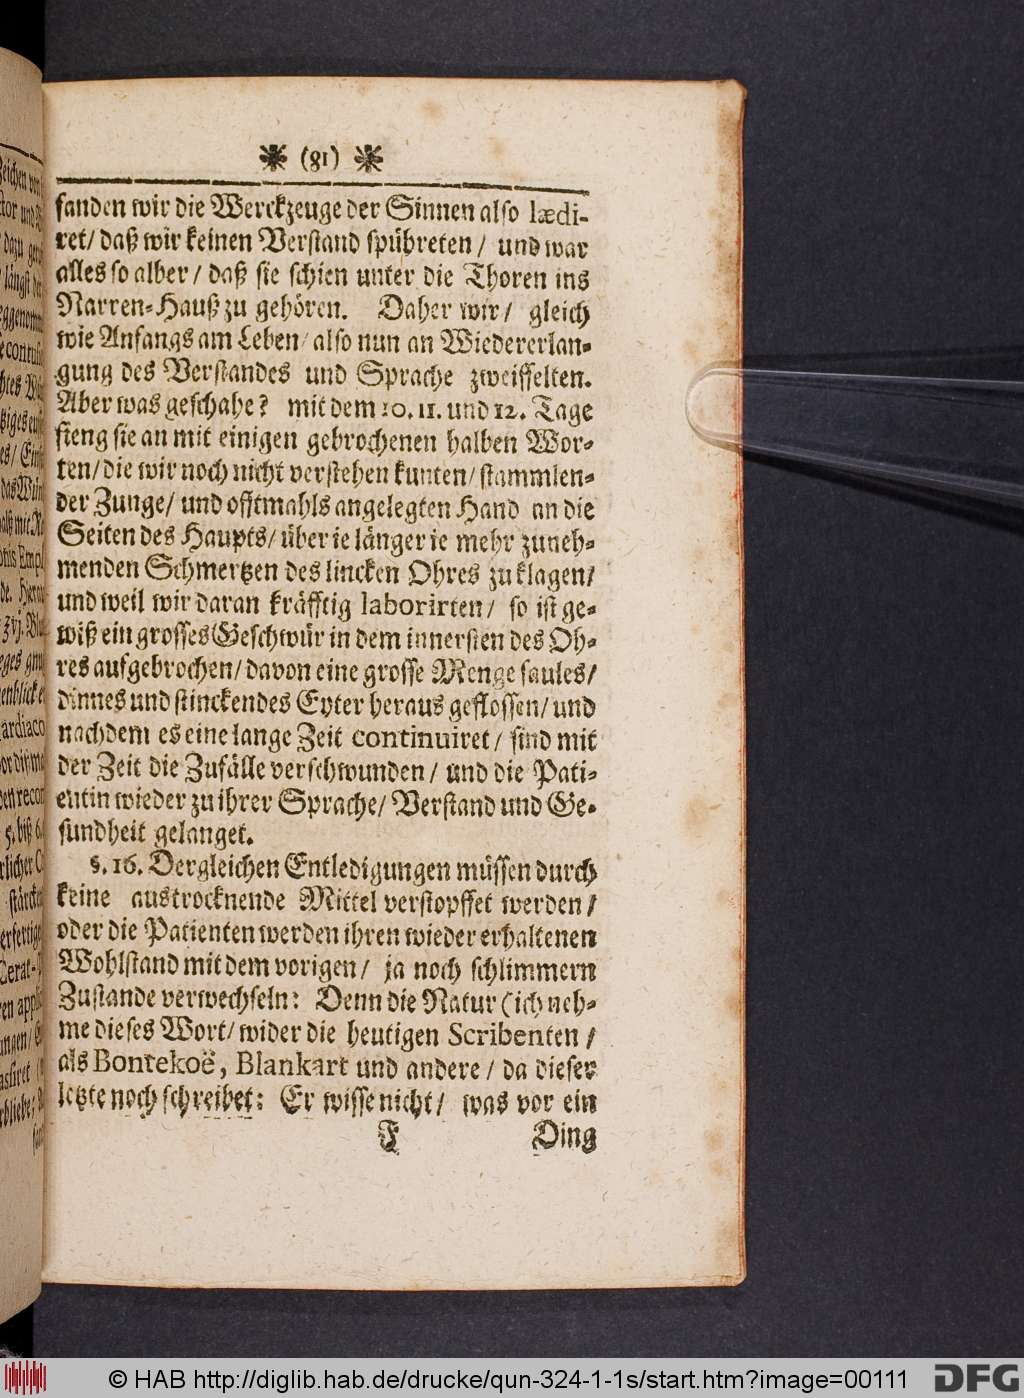 (81)
fanden wir die Werckzeuge der Sinnen also lædi-
ret/ daß wir keinen Verstand spühreten / und war
alles so alber / daß sie schien unter die Thoren ins
Narren-Hauß zu gehören. Daher wir / gleich
wie Anfangs am Leben / also nun an Wiedererlan-
gung des Verstandes und Sprache zweiffelten.
Aber was geschahe? mit dem 10. 11. und 12. Tage
fieng sie an mit einigen gebrochenen halben Wor-
ten/ die wir noch nicht verstehen kunten/ stammlen-
der Zunge/ und offtmahls angelegten Hand an die
Seiten des Haupts/ über ie länger ie mehr zuneh-
menden Schmertzen des lincken Ohres zu klagen/
und weil wir daran kräfftig laborirten/ so ist ge-
wiß ein grosses Geschwür in dem innersten des Oh-
res aufgebrochen/ davon eine grosse Menge faules/
dinnes und stinckendes Eyter heraus geflossen/ und
nachdem es eine lange Zeit continuiret / sind mit
der Zeit die Zufälle verschwunden / und die Pati-
entin wieder zu ihrer Sprache/ Verstand und Ge-
sundheit gelanget.
§. 16. Dergleichen Entledigungen müssen durch
keine austrocknende Mittel verstopffet werden /
oder die Patienten werden ihren wieder erhaltenen
Wohlstand mit dem vorigen / ja noch schlimmern
Zustande verwechseln: Denn die Natur (ich neh-
me dieses Wort/ wider die heutigen Scribenten /
als Bontekoë, Blankart und andere / da dieser
letzte noch schreibet: Er wisse nicht / was vor ein
F Ding
© HAB http://diglib.hab.de/drucke/qun-324-1-1s/start.htm?image=00111
DFG